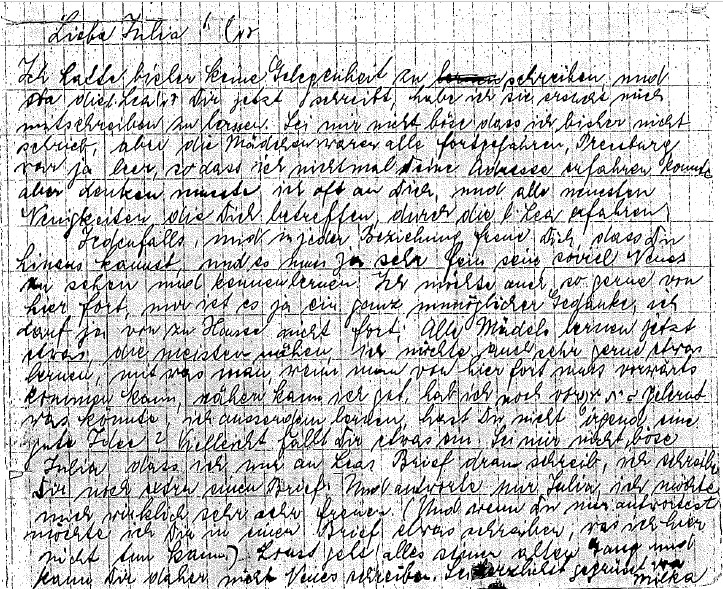 Liebe Julia
Ich hatte bisher keine Gelegenheit zu schreiben und
da dir jetzt schreibt, habe ich sie ersucht mich
mitschreiben zu lassen. Sei mir nicht böse dass ich bisher nicht
schrieb, aber die Mädchen waren alle fortgefahren, Pressburg
war ja leer, so dass ich nichtmal deine Adresse erfahren konnte
aber denken musste ich oft an Dich, und alle neuesten
Neuigkeiten die Dich betreffen, durch die erfahren,
Jedenfalls, und in jeder Beziehung freue Dich, dass Du
hinaus kannst, und es muss ja sehr fein sein soviel Neues
zu sehen und kennenlernen. Ich möchte auch so gerne von
hier fort, nur ist es ja ein ganz unmöglicher Gedanke, ich
darf ja von zu Hause nicht fort. Alle Mädels lernen jetzt
etwas, die meisten nähen, ich möchte auch sehr gerne etwas
lernen, mit was man, wenn man von hier fort muss vorwärts
kommen kann, nähen kann ich gut, hab ich noch gelernt
was könnte ich ausserdem lernen, hast Du nicht irgend eine
gute Idee? Vielleicht fällt dir etwas ein. Sei mir nicht böse
Julia dass ich nur an Leas Brief dran schreib, ich schreibe
Dir noch extra einen Brief. Und antworte mir Julia, ich möchte
mich wirklich sehr sehr freuen. (Und wenn Du mir antwortest
möchte ich Dir in einen Brief etwas schreiben, was ich hier
nicht tun kann). Sonst geht alles seinen alten Gang und
kann Dir daher nicht Neues schreiben. Sei herzlichst gegrüsst von
Milka